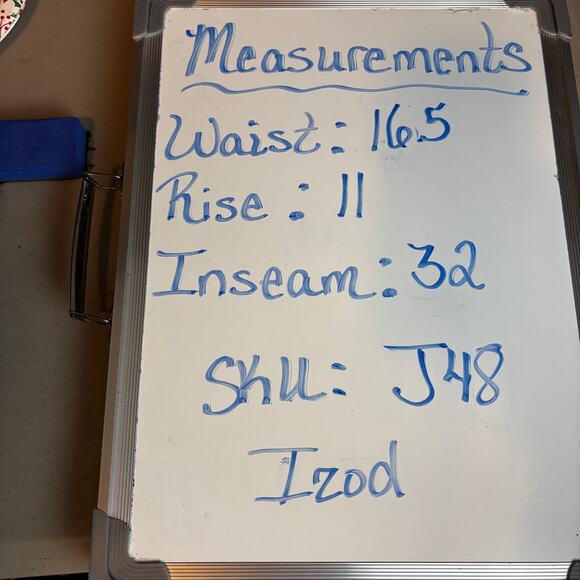 Measurements
Waist: 16.5
Rise: 11
Inseam: 32
Sku: J48
Izod